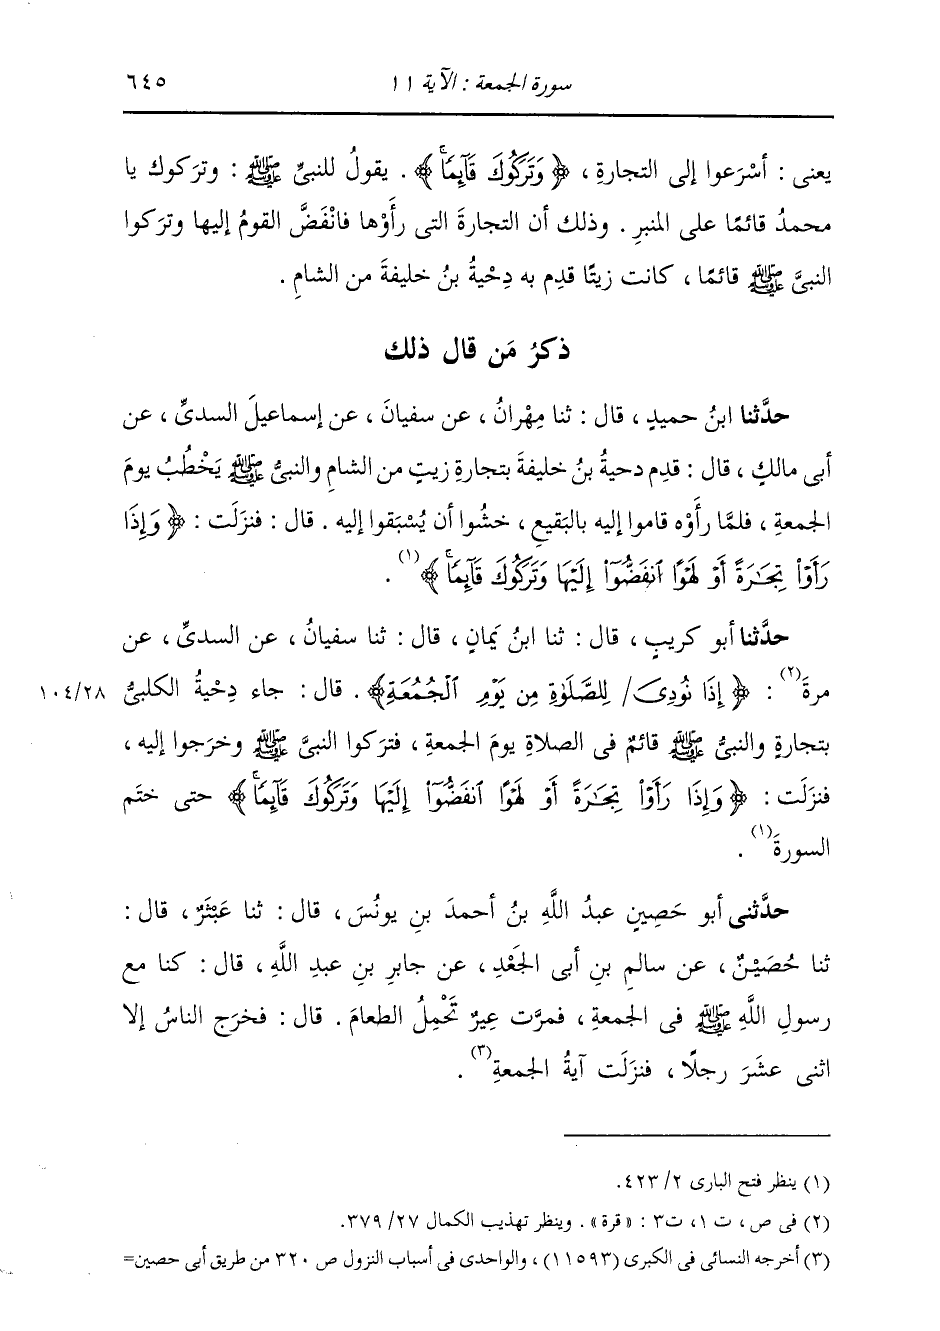 سورة الجمعة : الآية ١١
٦٤٥
يعنى : أسْرَعوا إلى التجارةِ ، ﴿ وَتَرَكُوكَ قَآئِمًا ﴾ . يقولُ للنبىِّ ﷺ : وترَكوك يا
محمدُ قائمًا على المنبرِ . وذلك أن التجارةَ التى رأَوْها فانْفَضَّ القومُ إليها وترَكوا
النبىَّ ﷺ قائمًا ، كانت زيتًا قدِم به دِحْيةُ بنُ خليفةَ من الشامِ .
ذكرُ مَن قال ذلك
حدَّثنا ابنُ حميدٍ ، قال : ثنا مِهْرانُ ، عن سفيانَ ، عن إسماعيلَ السدىِّ ، عن
أبى مالكٍ ، قال : قدِم دحيةُ بنُ خليفةَ بتجارةِ زيتٍ من الشامِ والنبىُّ ﷺ يَخْطُبُ يومَ
الجمعةِ ، فلمَّا رأَوْه قاموا إليه بالبَقيعِ ، خشُوا أن يُسْبَقوا إليه . قال : فنزَلَت : ﴿ وَإِذَا
رَأَوْاْ تِجَـٰرَةً أَوْ لَهْوًا ٱنفَضُّوٓاْ إِلَيْهَا وَتَرَكُوكَ قَآئِمًا ﴾(١) .
حدَّثنا أبو كريبٍ ، قال : ثنا ابنُ يَمانٍ ، قال : ثنا سفيانُ ، عن السدىِّ ، عن
مرةَ(٢) : ﴿ إِذَا نُودِىَ/ لِلصَّلَوٰةِ مِن يَوْمِ ٱلْجُمُعَةِ﴾ . قال : جاء دِحْيةُ الكلبىُّ ١٠٤/٢٨
بتجارةٍ والنبىُّ ﷺ قائمٌ فى الصلاةِ يومَ الجمعةِ ، فترَكوا النبىَّ ﷺ وخرَجوا إليه ،
فنزَلَت : ﴿ وَإِذَا رَأَوْاْ تِجَـٰرَةً أَوْ لَهْوًا ٱنفَضُّوٓاْ إِلَيْهَا وَتَرَكُوكَ قَآئِمًا ﴾ حتى ختَم
السورةَ(١) .
حدَّثنى أبو حَصِينٍ عبدُ اللَّهِ بنُ أحمدَ بنِ يونُسَ ، قال : ثنا عَبْثَرٌ ، قال :
ثنا حُصَيْنٌ ، عن سالمِ بنِ أبى الجَعْدِ ، عن جابرِ بنِ عبدِ اللَّهِ ، قال : كنا مع
رسولِ اللَّهِ ﷺ فى الجمعةِ ، فمرَّت عِيرٌ تَحْمِلُ الطعامَ . قال : فخرَج الناسُ إلا
اثنى عشَرَ رجلًا ، فنزَلَت آيةُ الجمعةِ(٣) .
(١) ينظر فتح البارى ٢/ ٤٢٣.
(٢) فى ص ، ت ١، ت٣ : «قرة» . وينظر تهذيب الكمال ٢٧/ ٣٧٩.
(٣) أخرجه النسائى فى الكبرى (١١٥٩٣) ، والواحدى فى أسباب النزول ص ٣٢٠ من طريق أبى حصين=